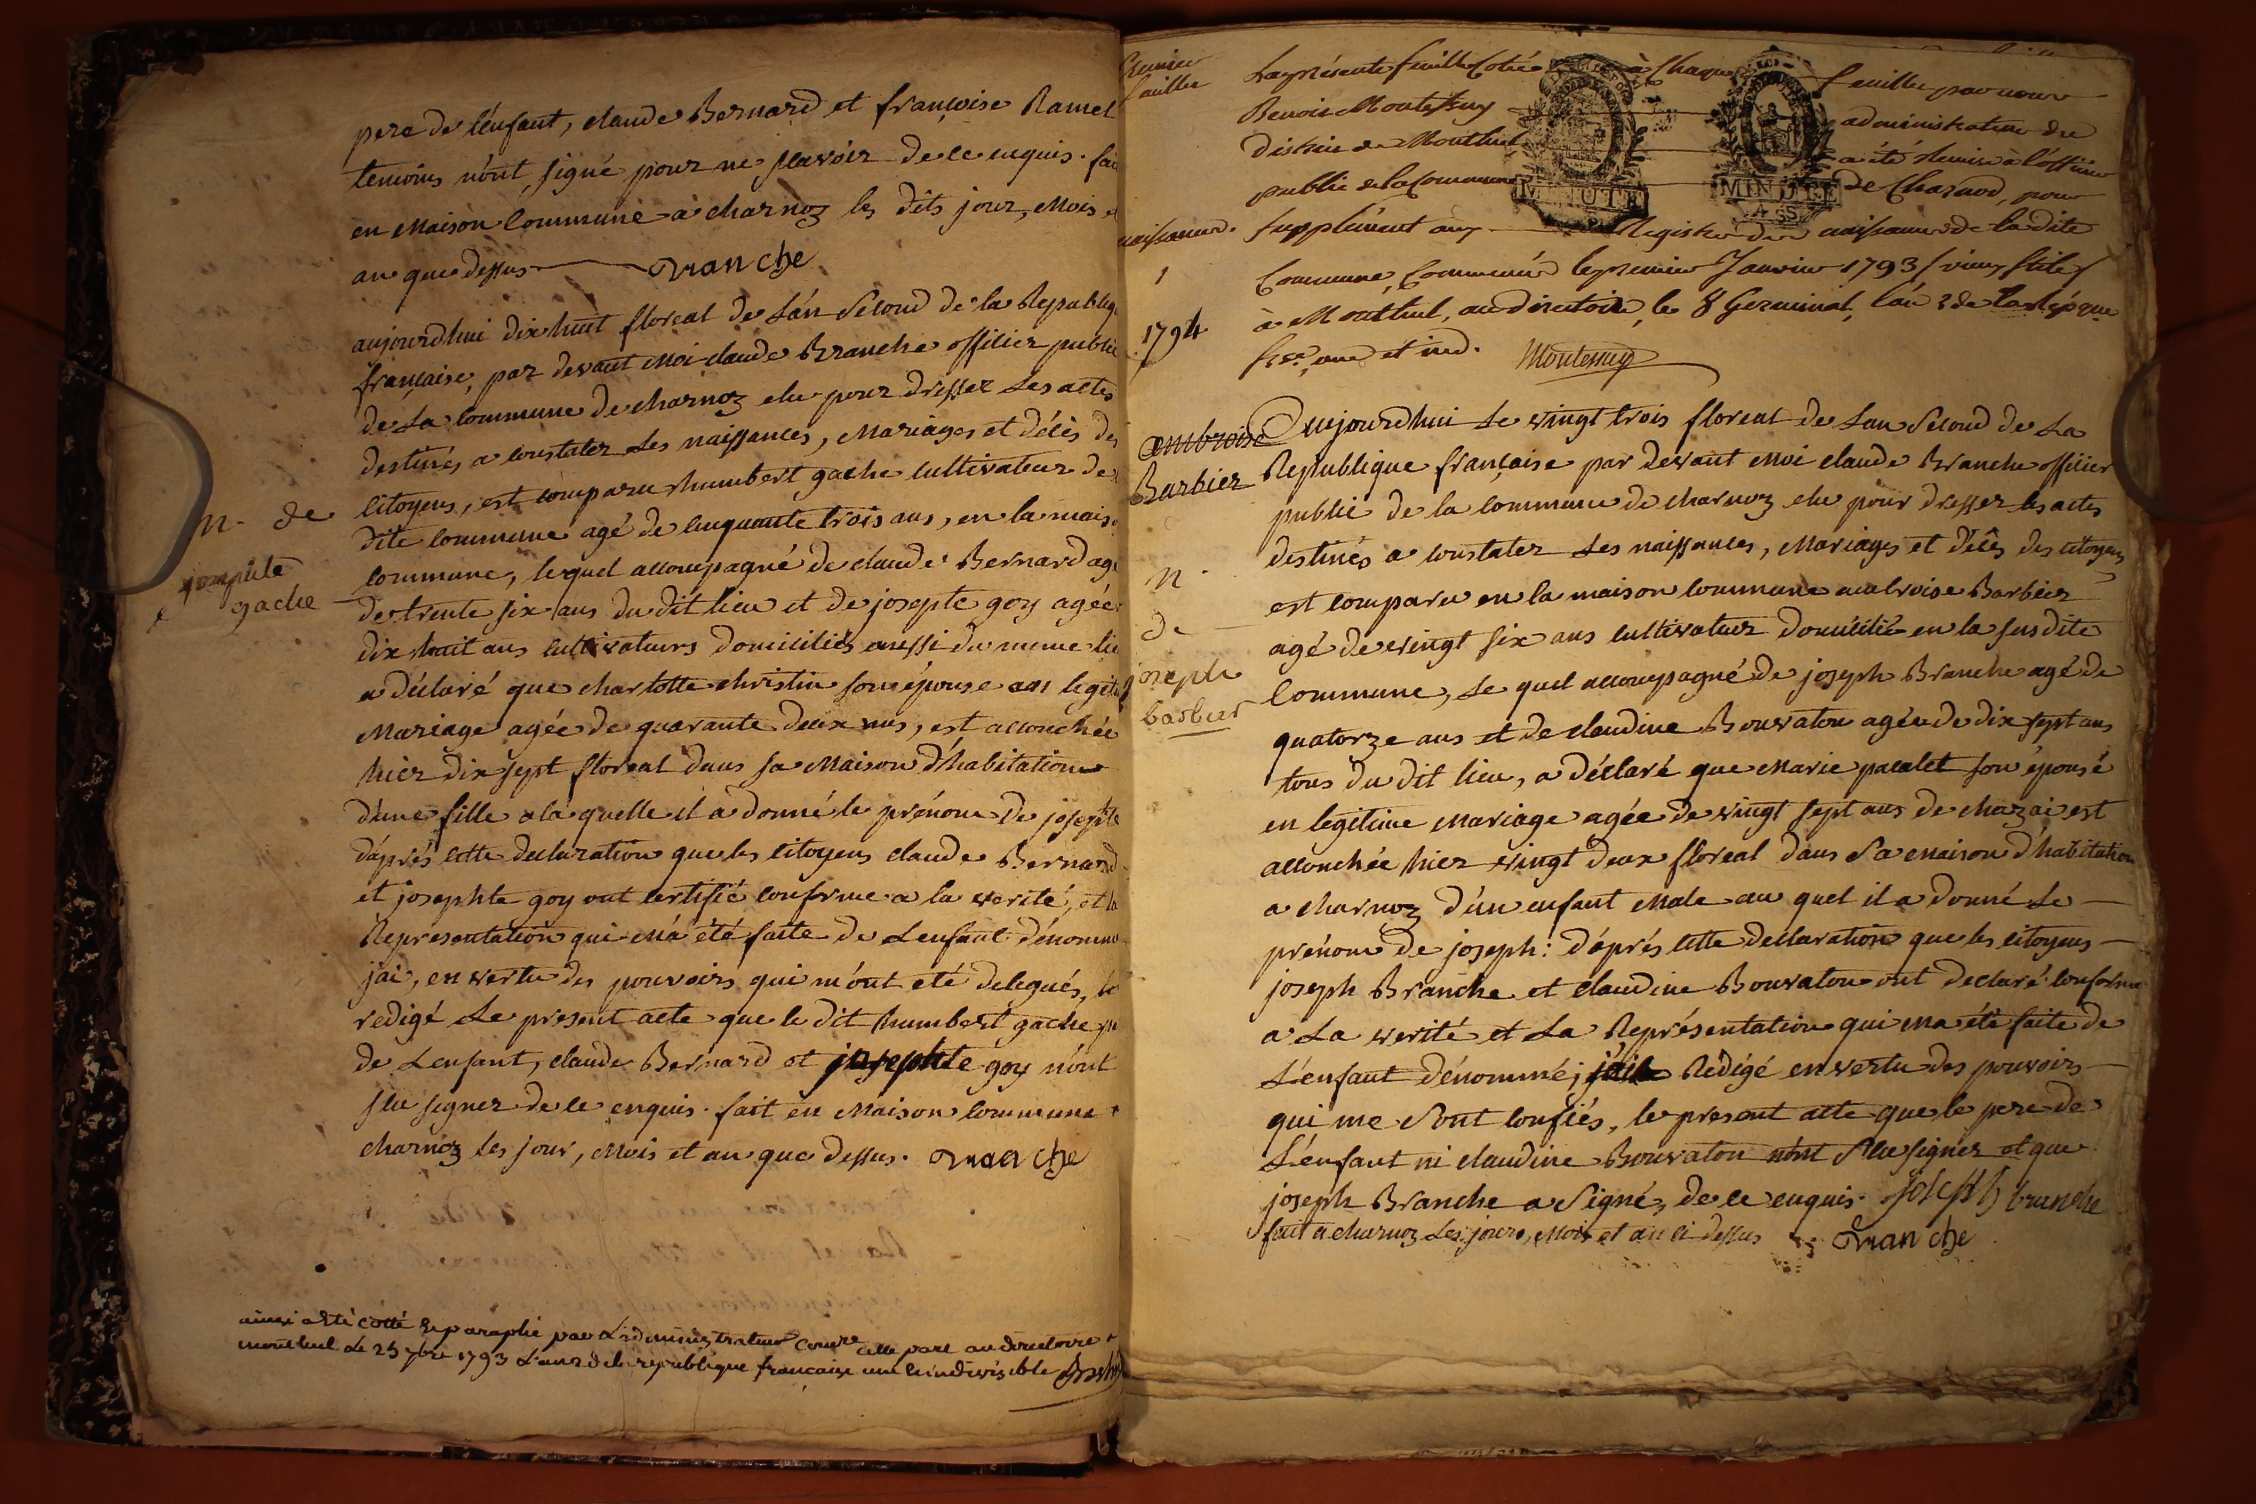 pere de l'enfant, claude Bernard et françoise Ramel
temoins n'ont signé pour ne sçavoir de ce enquis. fai
en Maison Commune a charnoz les dits jour, Mois
an que dessus Branche
aujourdhui dix huit floreal de L'an Second de la Republiq
française, par devant Moi claude Branche officier public
de La commune de charnoz elu pour dresser Les actes
destinés a constater Les naissances, Mariages et décès des
citoyens, est comparu humbert gache cultivateur de
dite commune agé de cinquante trois ans, en la mais
commune, lequel accompagné de claude Bernard ag
de trente six ans du dit lieu et de josephte goy agée
dix huit ans cultivateurs domiciliés aussi du meme li
a déclaré que charlotte christin son épouse en legit
Mariage agée de quarante deux ans, est accouchée
hier dix sept floreal dans sa Maison d'habitation
d'une fille a la quelle il a donné le prénom de josephte
d'aprés cette declaration que les citoyens claude Bernard
et josephte goy ont certifié conforme a la verité, et la
Représentation qui m'a été faite de L'enfant dénommé
jai, en vertu des pouvoirs qui m'ont été delegués,
redigé Le present acte que le dit humbert gache
de L'enfant, claude Bernard et josephte goy n'ont
sçu signer de ce enquis. fait en Maison commune
charnoz les jour, Mois et an que dessus. Branche
n. de
josephte
gache
ainsi a été cotté et paraphé par L'administrateur au directoire
montluel Le 25 7bre 1793 L'an 2 de la republique française une et indivisible
Premier
feuillet
La présente feuille Cotée à Chaque feuille par nous
Benoit Montessuy administrateur du
District de Montluel a été remise à l'officier
public de la Commune de Charnod, pour
Supplément aux Registre des naissances de la dite
Commune, Commencé le premier Janvier 1793 (vieux stile)
à Montluel, au directoire, le 8 Germinal, l'an 2 de la Répque
frse, une et ind. Montessuy
naissances.
1
1794
ambroise
Barbier
Aujourdhui Le vingt trois floreal de L'an Second de La
Republique française par devant Moi claude Branche officier
public de la commune de charnoz elu pour dresser les actes
destinés a constater Les naissances, Mariages et décès des citoyens
est comparu en la maison commune ambroise Barbier
agé de vingt six ans cultivateur domicilié en la susdite
commune, Le quel accompagné de joseph Branche agé de
quatorze ans et de claudine Bouvaton agée de dix sept ans
tous du dit lieu, a déclaré que Marie pacalet son épouse
en legitime Mariage agée de vingt sept ans de chazai est
accouchée hier vingt deux floreal dans Sa Maison d'habitation
a charnoz d'un enfant Male au quel il a donné Le
prénom de joseph: d'aprés cette declaration que les citoyens
joseph Branche et claudine Bouvaton ont declaré conforme
a La verité et La Représentation qui m'a été faite de
L'enfant dénommé, j'ai Redigé en vertu des pouvoirs
qui me Sont confiés, le present acte que le pere de
L'enfant ni claudine Bouvaton n'ont Sçu signer et que
joseph Branche a Signé, de ce enquis. joseph branche
fait a charnoz Les jours, Mois et an ci dessus Branche
n.
de
joseph
barbier
MINUTE
MINUTE